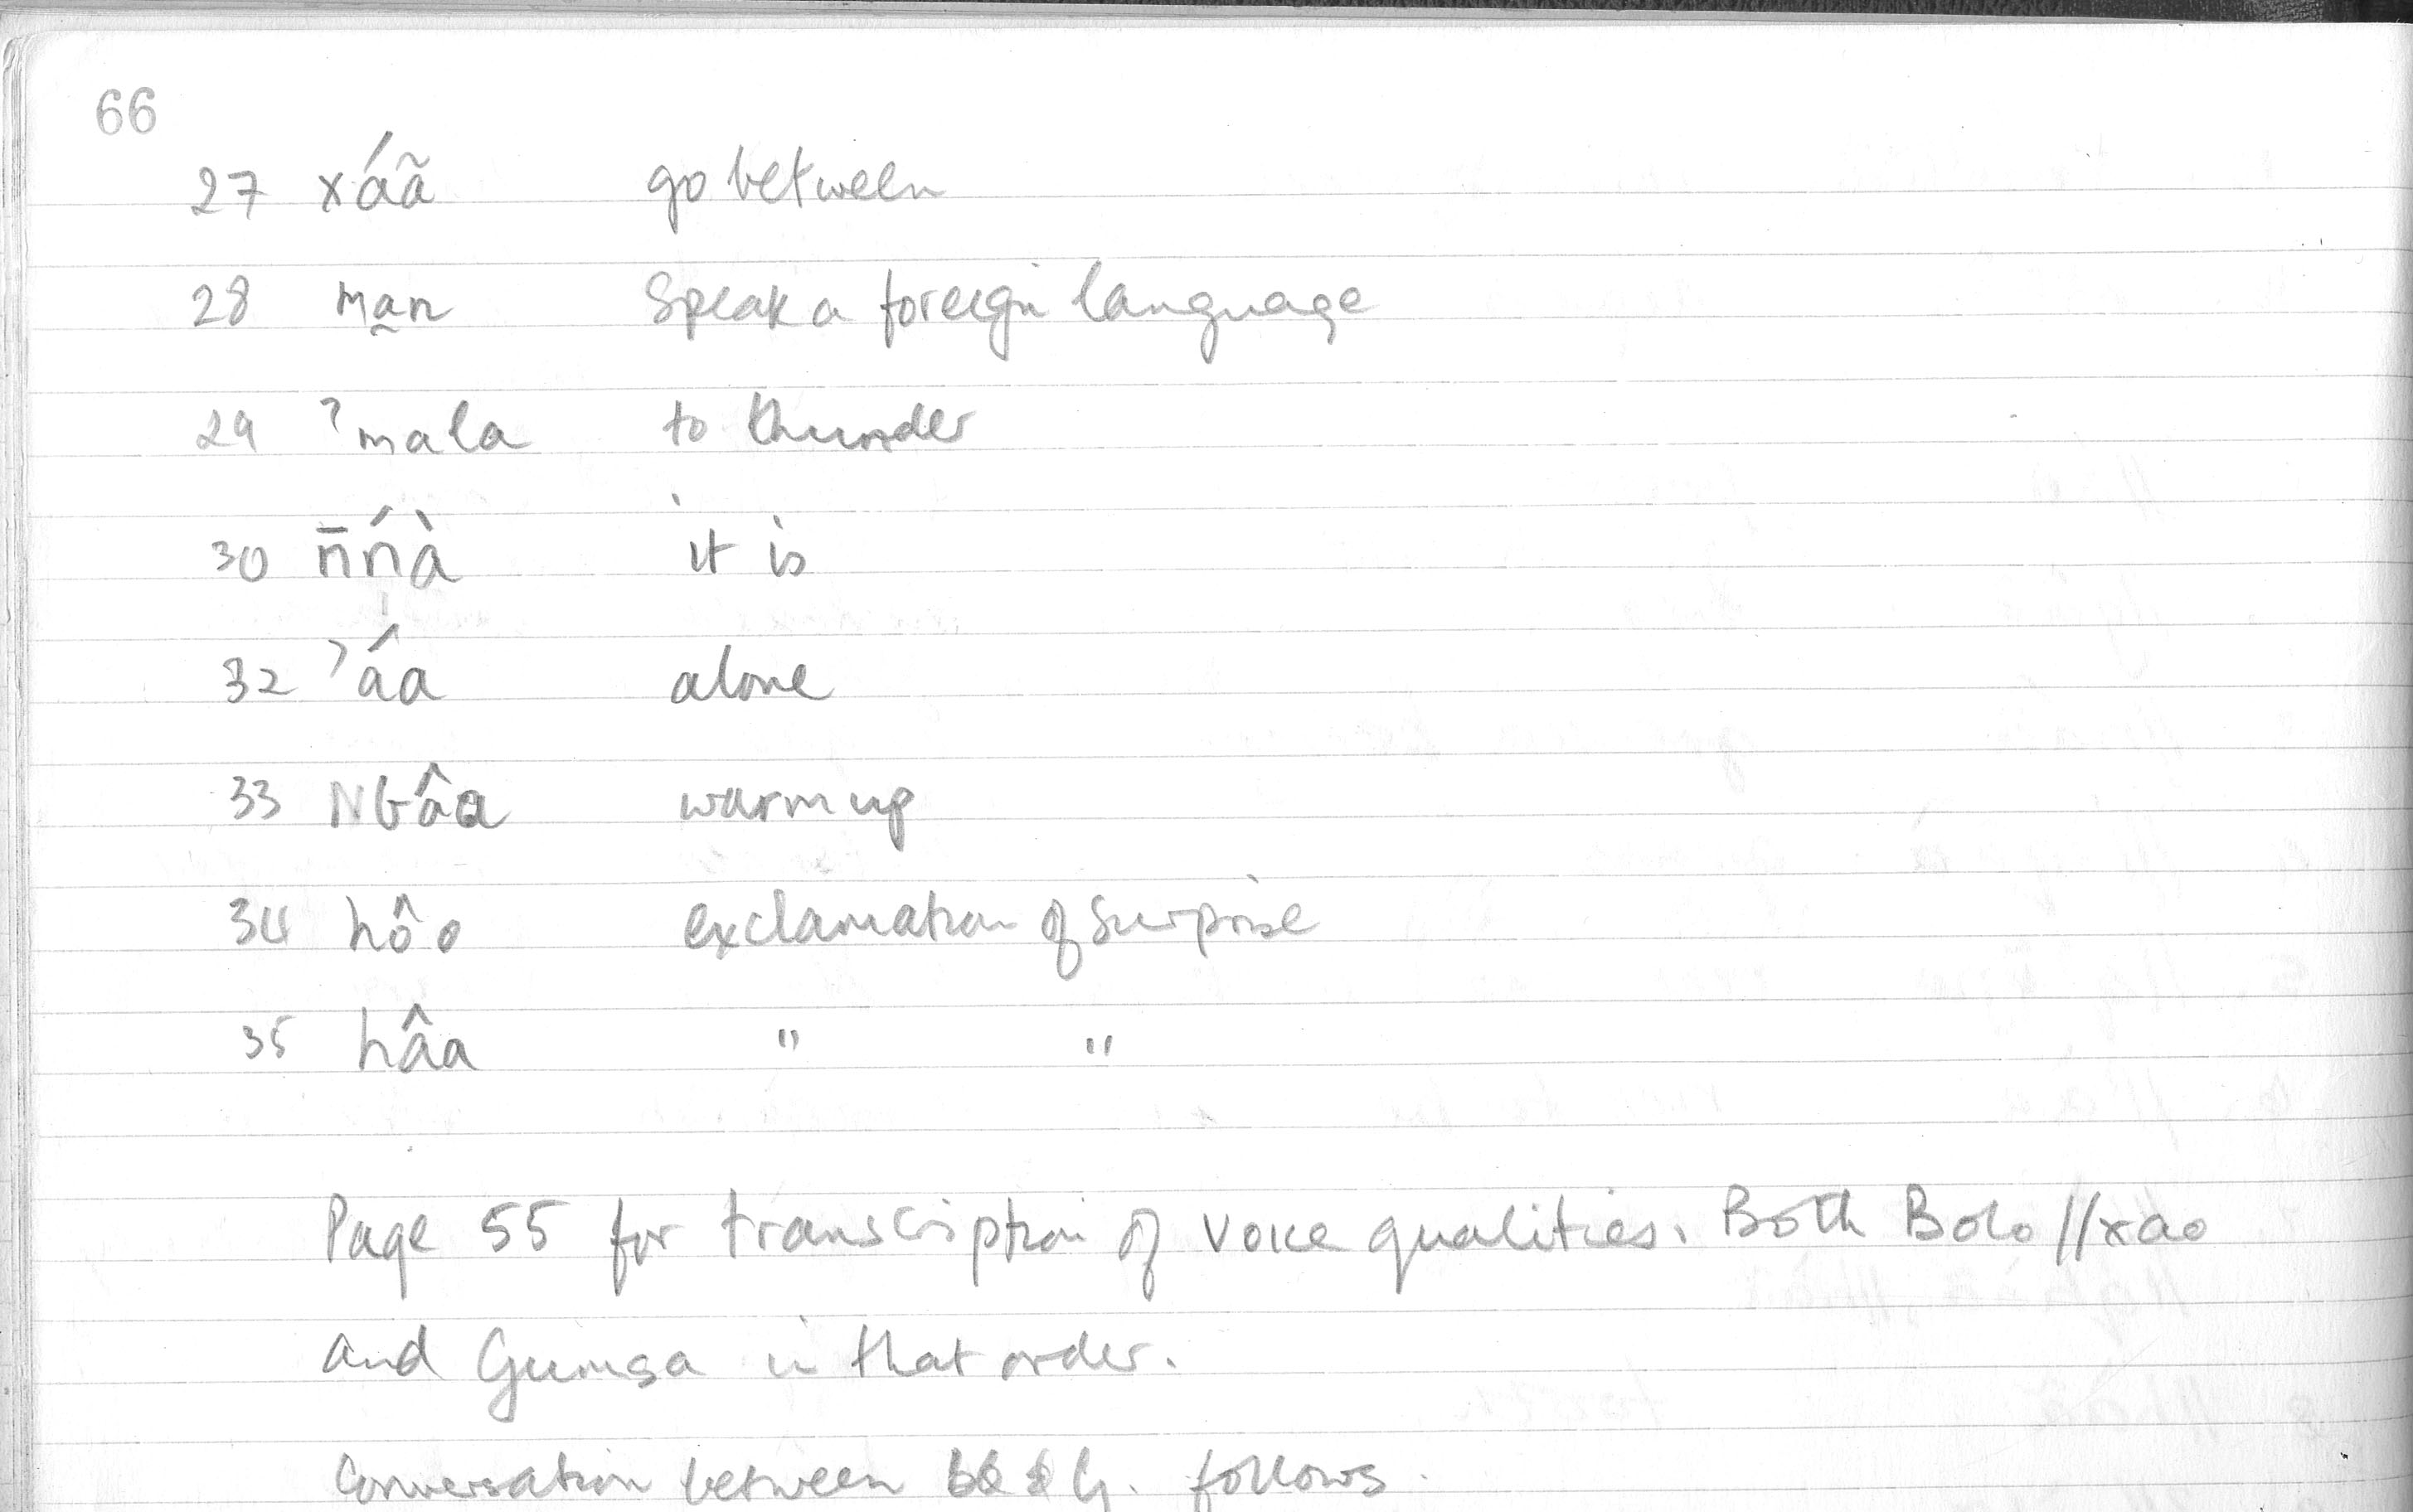 66
27 xáã go between
28 ma̰n Speak a foreign language
29 ˀmala to thunder
30 n̄ńà it is
32 ˀáa alone
33 âa warm up
34 hôo exclamation of surprise
35 hâa " "
Page 55 for transcription of voice qualities. Both Bolo //xao
and in that order.
Conversation between & G. follows.